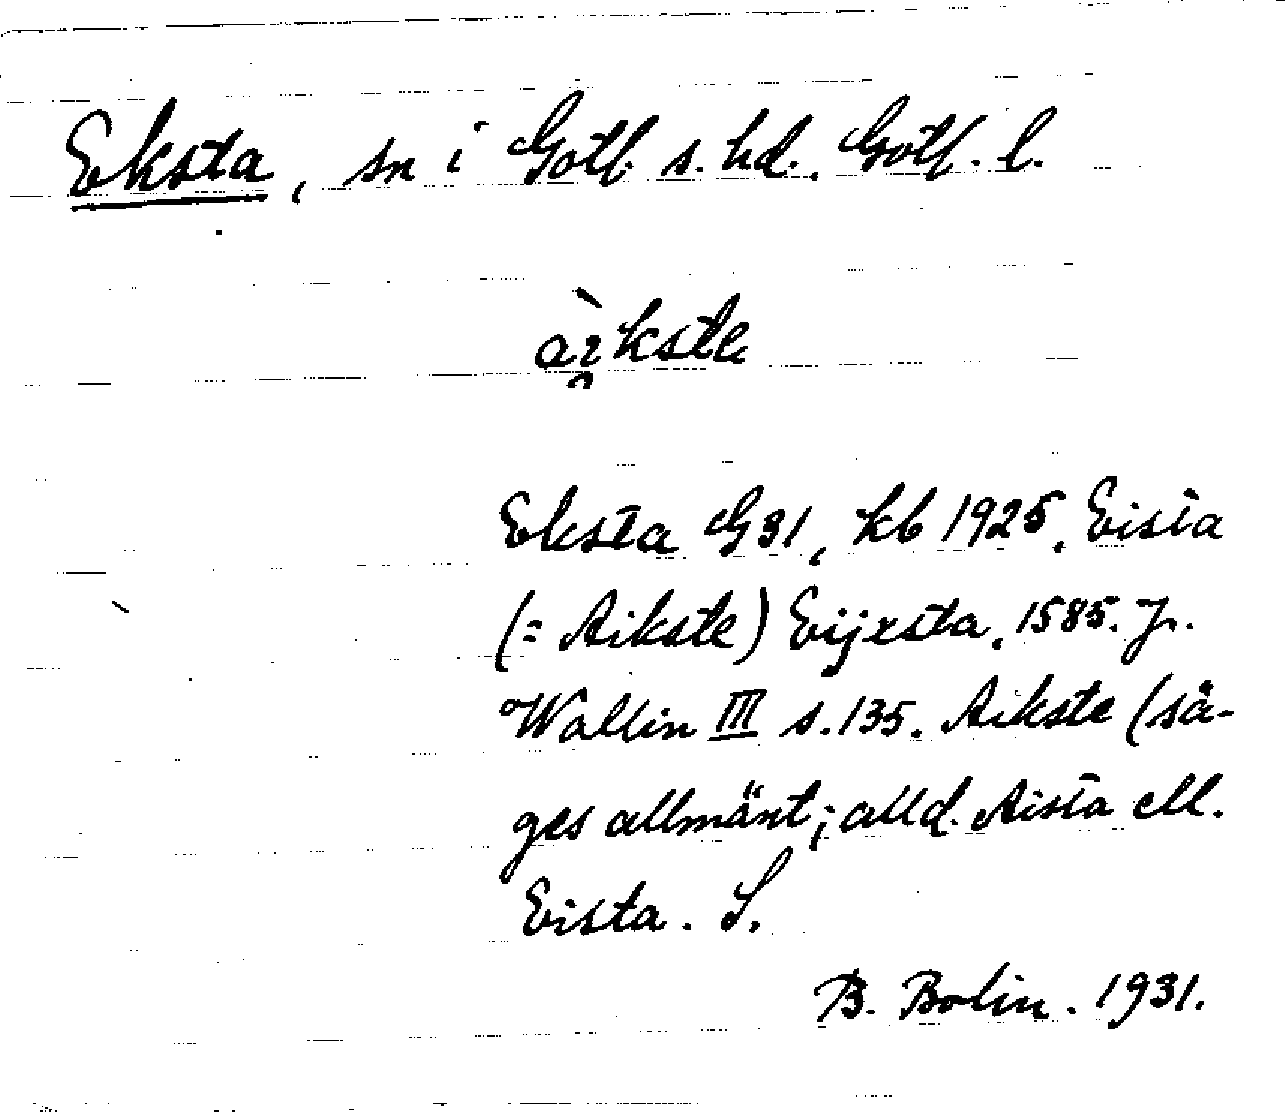 Eksta, sn i Gotl. s. hd., Gotl. l.
àikste
Eksta G31, kb 1925, Eista
(= Aikste) Eijxsta, 1585. Jr.
Wallin III s. 135. Aikste (sä-
ges allmänt; alld. Aista ell.
Eista. S.
B. Bolin. 1931.